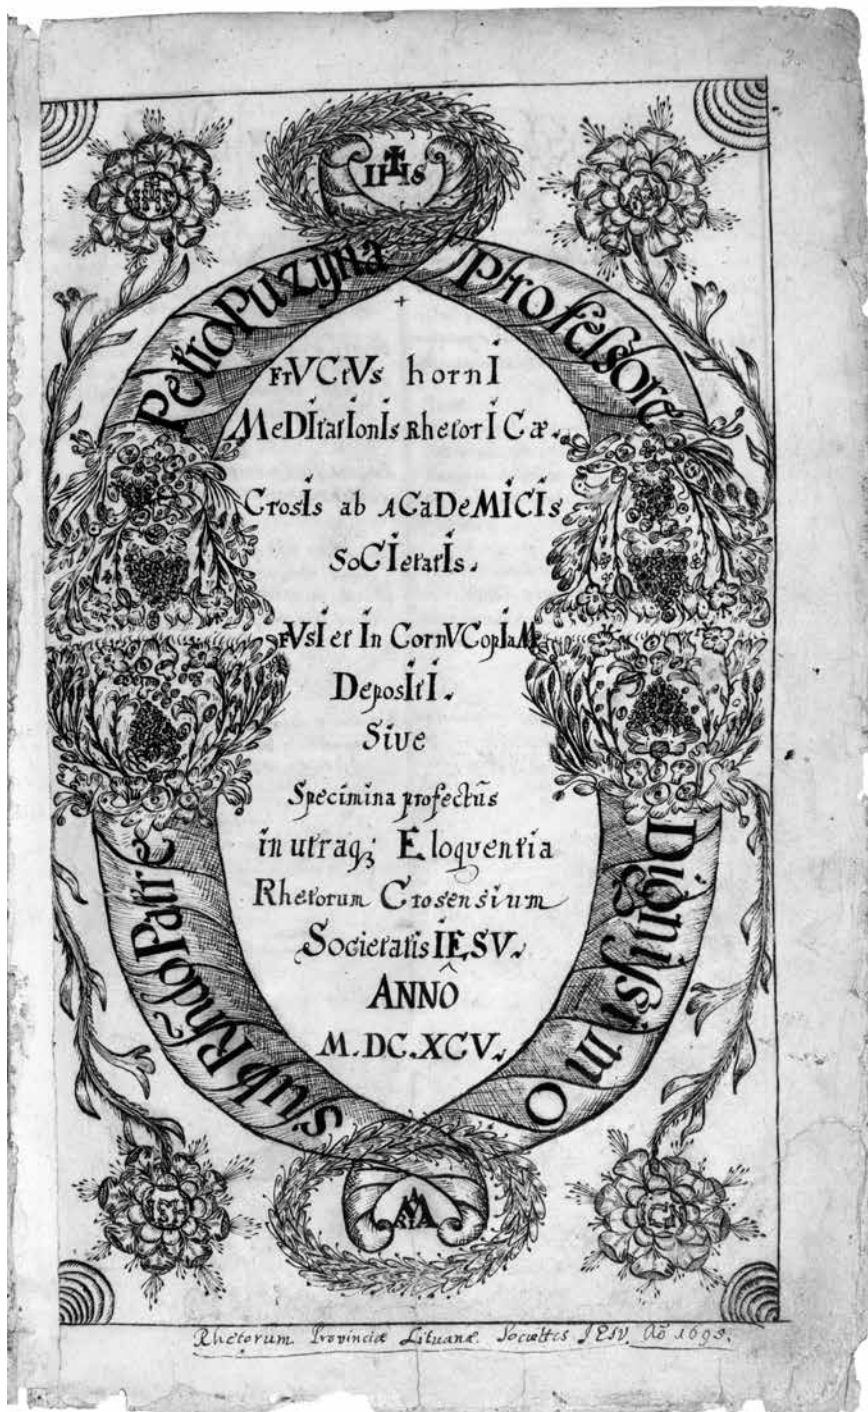 IHS
Petro Puzyna Professore
FrVCtVs hornI
MeDItatIonIs RhetorICæ.
CrosIs ab ACaDeMICIs
SoCIetatIs.
FVsI et In CornVCopIaM
DeposItI.
Sive
Specimina profectūs
in utraq; Eloquentia
Rhetorum Crosensium
Societatis IESV.
ANNÔ
M.DC.XCV.
Sub Rndo Patre
Dignissimo
MARIA
Rhetorum Provinciæ Lituanæ Societtis IESV. Aõ 1695.